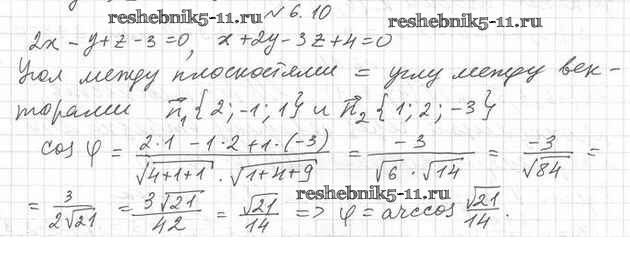 reshebnik5-11.ru № 6.10 reshebnik5-11.ru
2x - y + z - 3 = 0, x + 2y - 3z + 4 = 0
Угол между плоскостями = углу между век-
торами n⃗₁ {2; -1; 1} и n⃗₂ {1; 2; -3}
cos φ = (2·1 - 1·2 + 1·(-3)) / (√(4+1+1) · √(1+4+9)) = -3 / (√6 · √14) = -3 / √84 =
= 3 / (2√21) = 3√21 / 42 = √21 / 14 => φ = arccos √21 / 14.
reshebnik5-11.ru